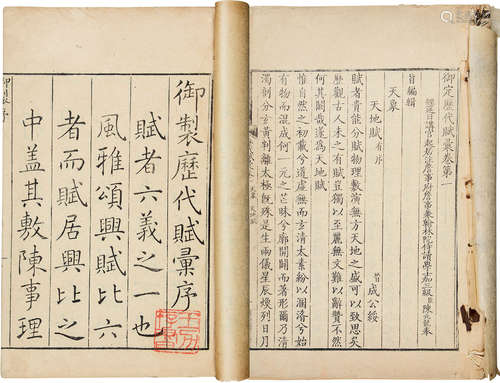 御定歷代賦彙卷第一
經筵日講官起居注詹事府詹事兼翰林院侍讀學士加三級臣陳元龍奉
旨編輯
天象
天地賦有序
晉成公綏
賦者貴能分賦物理敷演無方天地之盛可以致思矣
歷觀古人未之有賦豈獨以至麗無文難以辭贊不然
何其闕哉遂為天地賦
惟自然之初載兮道虛無而玄清太素紛以溷淆兮始
有物而混成何一元之芒昧兮廓開闢而著形爾乃清
濁剖分玄黃判離太極既殊是生兩儀星辰煥列日月
御製歷代賦彙序
賦者六義之一也
風雅頌興賦比六
者而賦居興比之
中盖其敷陳事理